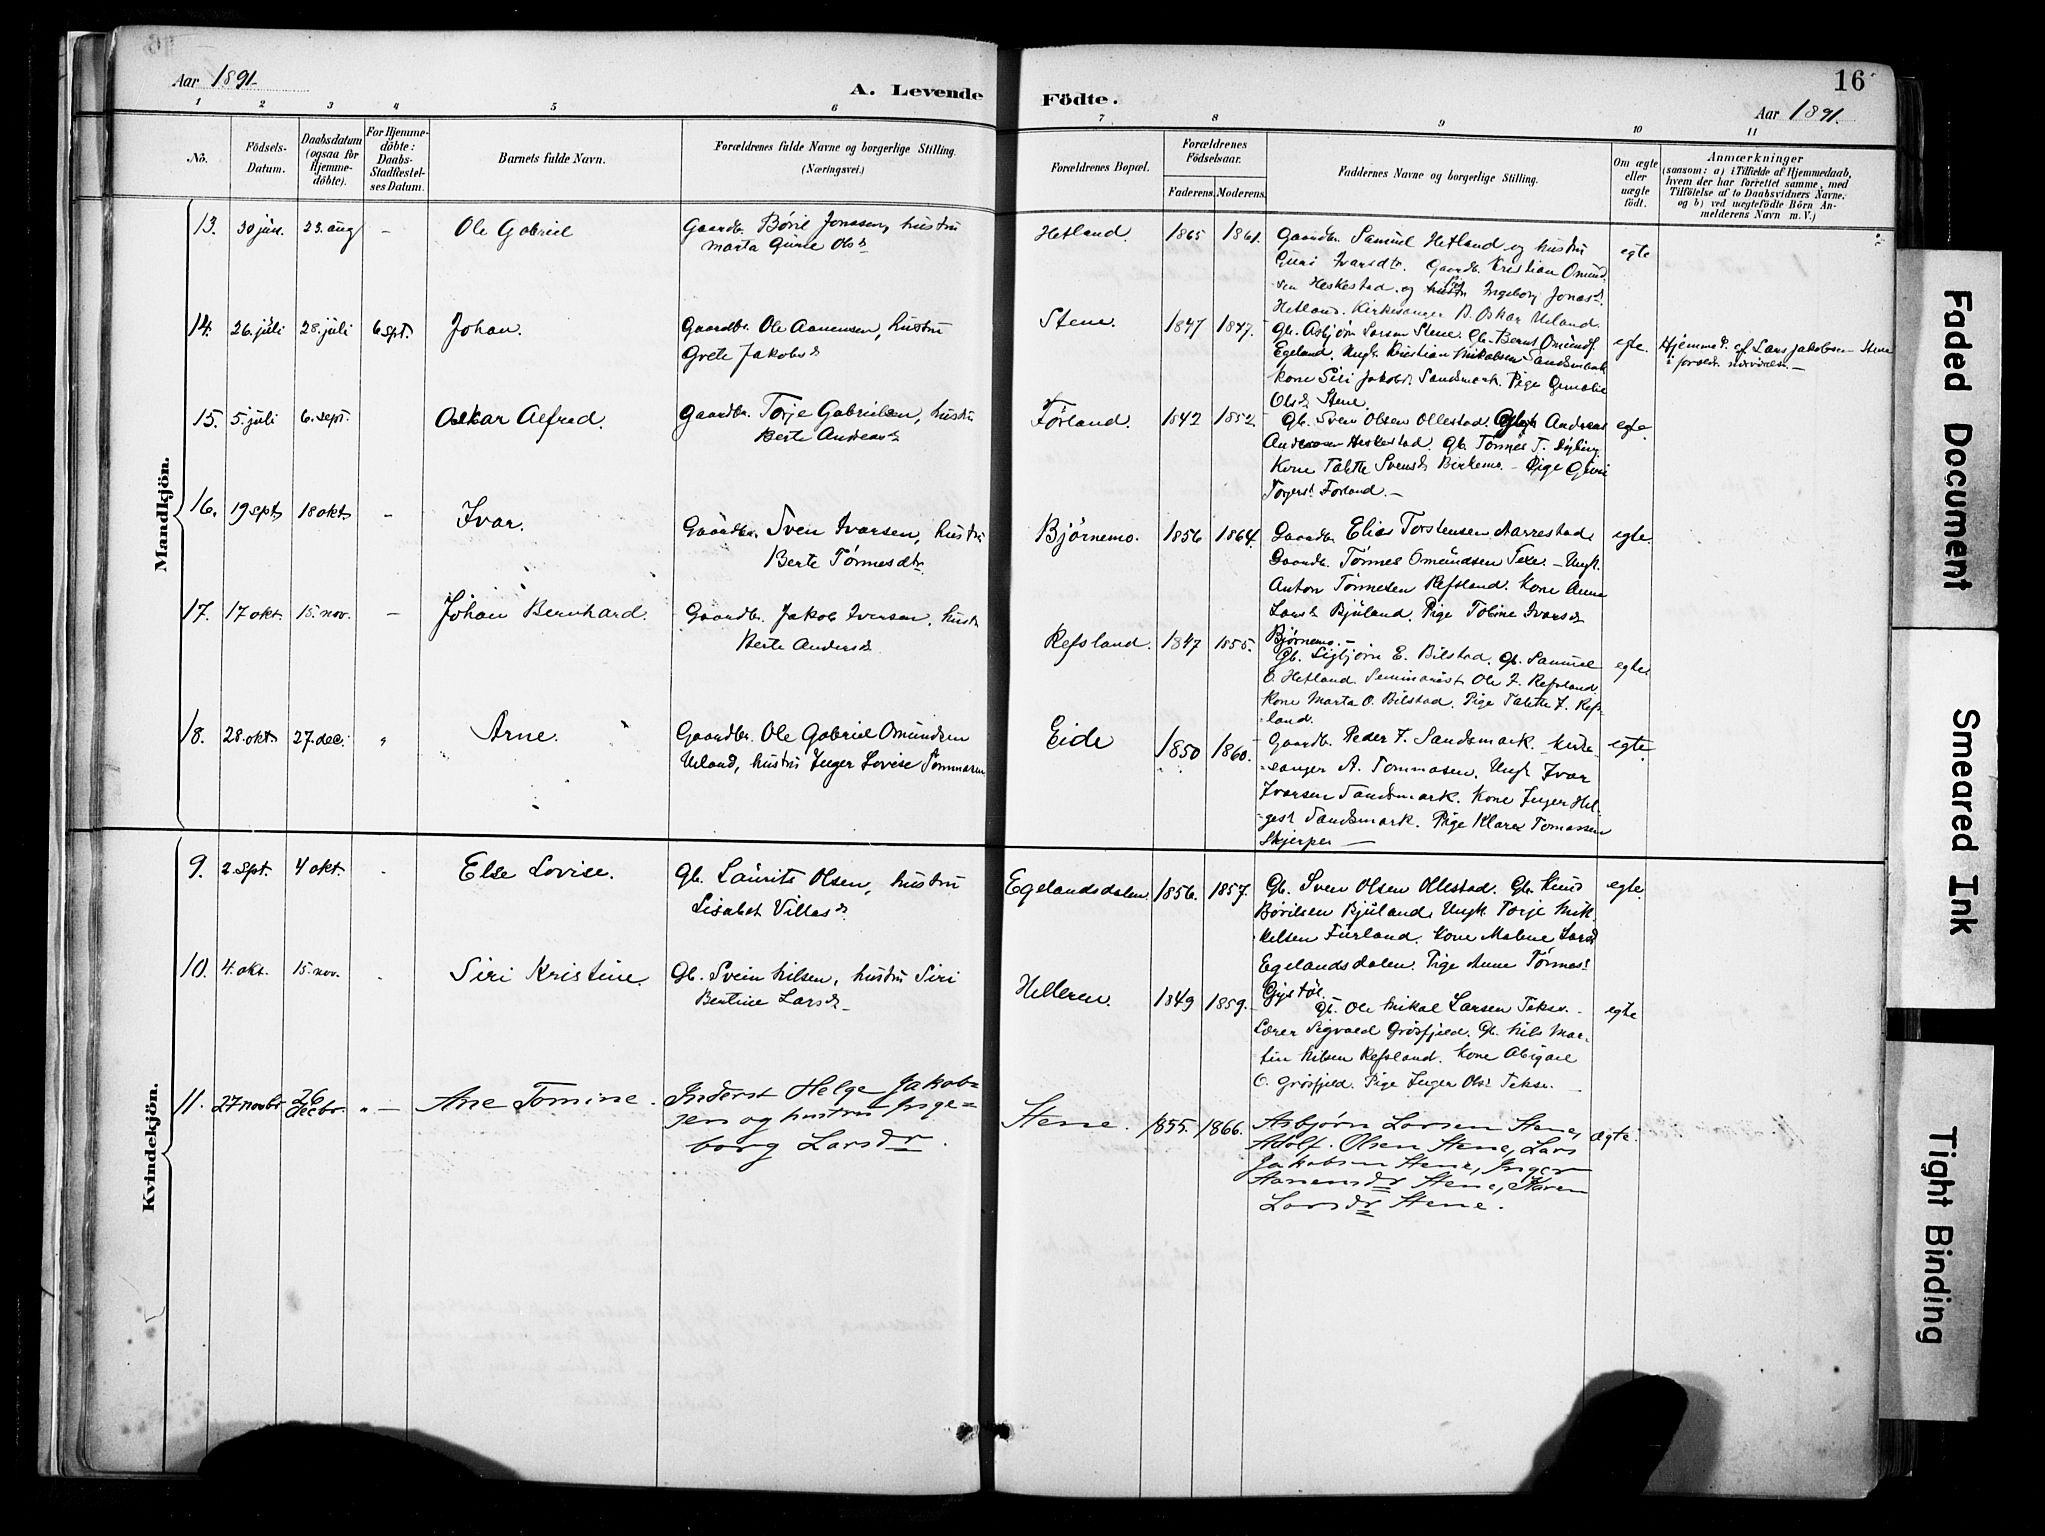 Aar 1891.
A. Levende
Födte.
16
Aar 1891.
1 2 3 4 5 6 7 8 9 10 11
No.
Födsels-
Datum.
Daabsdatum
(ogsaa for
Hjemme-
döbte).
For Hjemme-
döbte:
Daabs-
Stadfæstel-
ses Datum.
Barnets fulde Navn.
Forældrenes fulde Navne og borgerlige Stilling.
(Næringsvei.)
Forældrenes Bopæl.
Forældrenes
Födselsaar.
Faderens.
Moderens.
Faddernes Navne og borgerlige Stilling.
Om ægte
eller
uægte
födt.
Anmærkninger
(saasom: a) i Tilfælde af Hjemmedaab,
hvem der har forrettet samme, med
Tilföielse af to Daabsvidners Navne.
og b) ved uægtefödte Börn An-
melderens Navn m. V.)
Mandkjön.
13. 30 jun. 23. aug - Ole Gabriel
Gaardbr. Børil Jonasen, hustru
Marta Gurine Olsd
Hetland. 1865 1861.
Gaardb. Samuel Hetland og hustru
Guri Ivarsdtr. Gaardb. Kristian Omund
sen Heskestad og Ingeborg Jonasd
Hetland. Kirkesanger Oskar Ueland.
egte
14. 26. juli 28. juli 6 sept. Johan.
Gaardbr. Ole Aanensen, hustru
Grete Jakobsd
Stene. 1847 1847.
Gb. Asbjørn Larsen Stene. Gb. Bernt Omunds.
Egeland. Ungk. Kristian Mikalsen Sandsmark
Kone Siri Jakobsd. Sandsmark. Pige
Olsd. Stene.
egte.
Hjemmed. af Lars Jakobsen Stene
i foreldr. nærværelse.
15. 5. juli 6. sept. Oskar Alfred.
Gaardbr. Torje Gabrielsen, hustru
Berte Andreasd
Førland. 1842 1852.
Gb. Sven Olsen Ollestad. Andreas
Andreasen Heskestad. Gb. Tønnes T.
Kone Talette Svensd. Birkemo. Pige
Torjersd. Førland.
egte.
16. 19 sept 18 okt - Ivar.
Gaardbr. Sven Ivarsen, hustru
Berte Tønnesdtr.
Bjørnemo. 1856 1864.
Gaardb. Elias Torstensen Aarrestad,
Gaardb. Tønnes Omundsen Teke. Ungk.
Anton Tønnesen Refsland. Kone Anna
Larsd. Bjuland. Pige Tobine Ivarsd
Bjørnemo.
egte.
17. 17 okt. 15. nov. - Johan Bernhard.
Gaardbr. Jakob Iversen, hust.
Berte Andersd
Refsland. 1847 1855.
Gb. Sigbjørn E. Bilstad. Gb. Samuel
E. Hetland. Seminarist Ole J. Refsland.
Kone Marta O. Bilstad. Pige Talette J. Refs-
land.
egte
18. 28. okt. 27. dec. " Arne.
Gaardbr. Ole Gabriel Omundsen
Ueland, hustru Inger Lovise Tommasen
Eide 1850 1860.
Gaardb. Peder T. Sandsmark. Kirke-
sanger A. Tommasen. Ungk. Ivar
Ivarsen Sandsmark. Kone Inger Hel-
gesd. Sandsmark. Pige Klara Tomassen
Skjerpe
egte.
Kvindekjön.
9. 2. spt. 4 okt. Else Lovise.
Gb. Laurits Olsen, hustru
Lisabet Villasd.
Egelandsdalen. 1856. 1857.
Gb. Sven Olsen Ollestad. Gb. Knud
Børilsen Bjuland. Ungk. Torje Mik-
kelsen Furland. Kone Malene Larsd
Egelandsdalen. Pige Anne Tønnesd
Gystøl.
egte.
10. 4. okt. 15. nov. Siri Kristine.
Gb. Svein Nilsen, hustru Siri
Bertine Larsd
Helleren. 1849 1859.
Gb. Ole Mikal Larsen Tekse.
Lærer Sigvald Grøsfjeld. Gb. Nils Mar-
tin Nilsen Refsland. Kone Abigael
O. Grøsfjeld. Pige Inger Olsd Tekse.
egte
11. 27 novbr 26 decbr. " - Ane Tomine.
Inderst Helge Jakob-
sen og hustru Inge-
borg Larsdr.
Stene. 1855. 1866.
Asbjørn Larsen Stene,
Adolf Olsen Stene, Lars
Jakobsen Stene, Inger
Aanensdr Stene, Karen
Larsdr Stene.
ægte.
Faded Document
Smeared Ink
Tight Binding